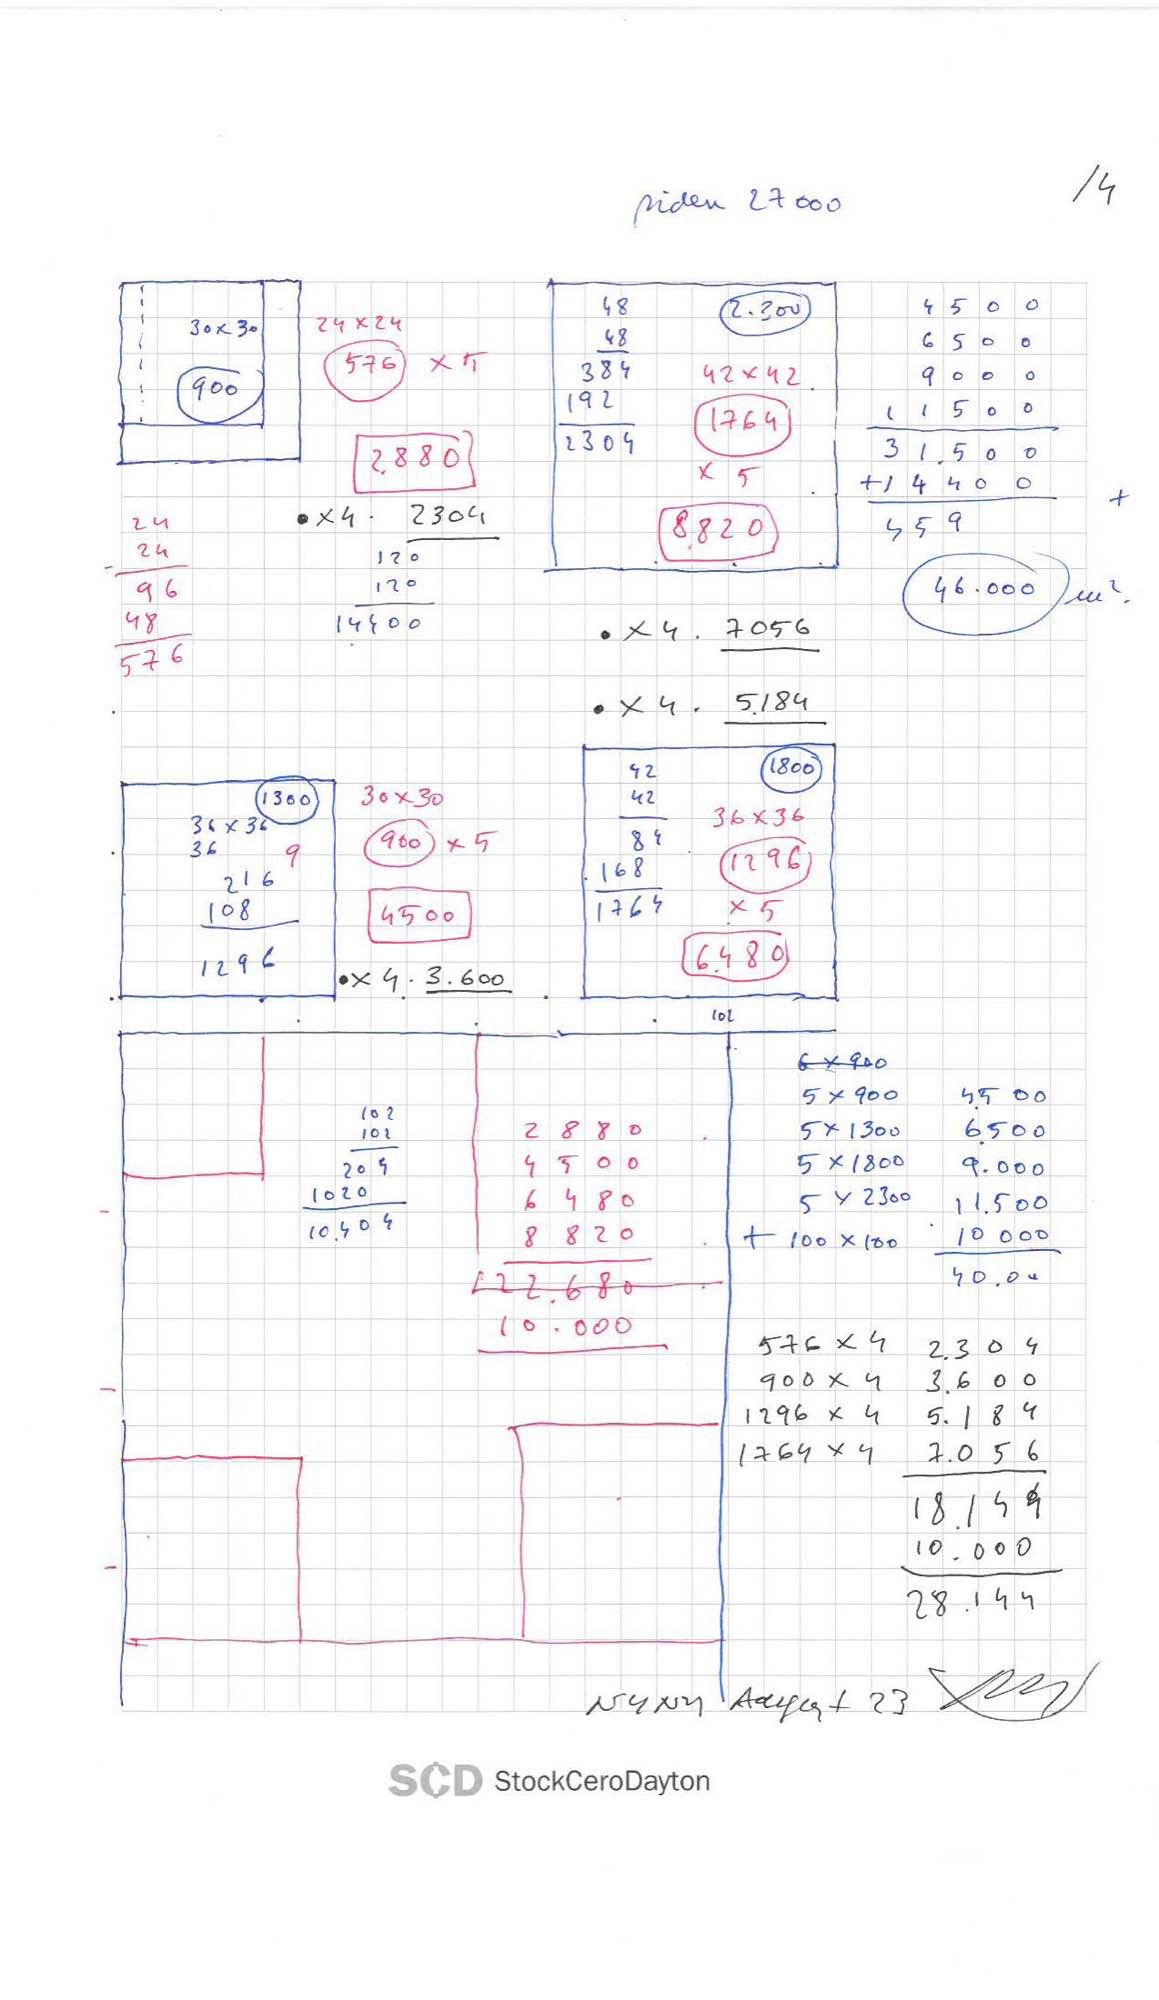 /4
piden 27000
30×30
900
24×24
576 × 5
2.880
•×4. 2304
120
120
14400
24
24
96
48
576
48
48
384
192
2304
2.300
42×42
1764
× 5
8.820
•×4. 7056
4500
6500
9000
11500
31.500
+14400
459
+
46.000 m².
•×4. 5.184
1300
36×36
36
9
216
108
1296
30×30
900 × 5
4500
•×4. 3.600
42
42
84
168
1764
1800
36×36
1296
× 5
6.480
102
102
102
204
1020
10.404
2880
4500
6480
8820
22.680
10.000
6×900
5×900 4500
5×1300 6.500
5×1800 9.000
5×2300 11.500
+ 100×100 10 000
40.00
576×4 2.304
900×4 3.600
1296×4 5.184
1764×4 7.056
18.144
10.000
28.144
NYNY August 23
SCD StockCeroDayton